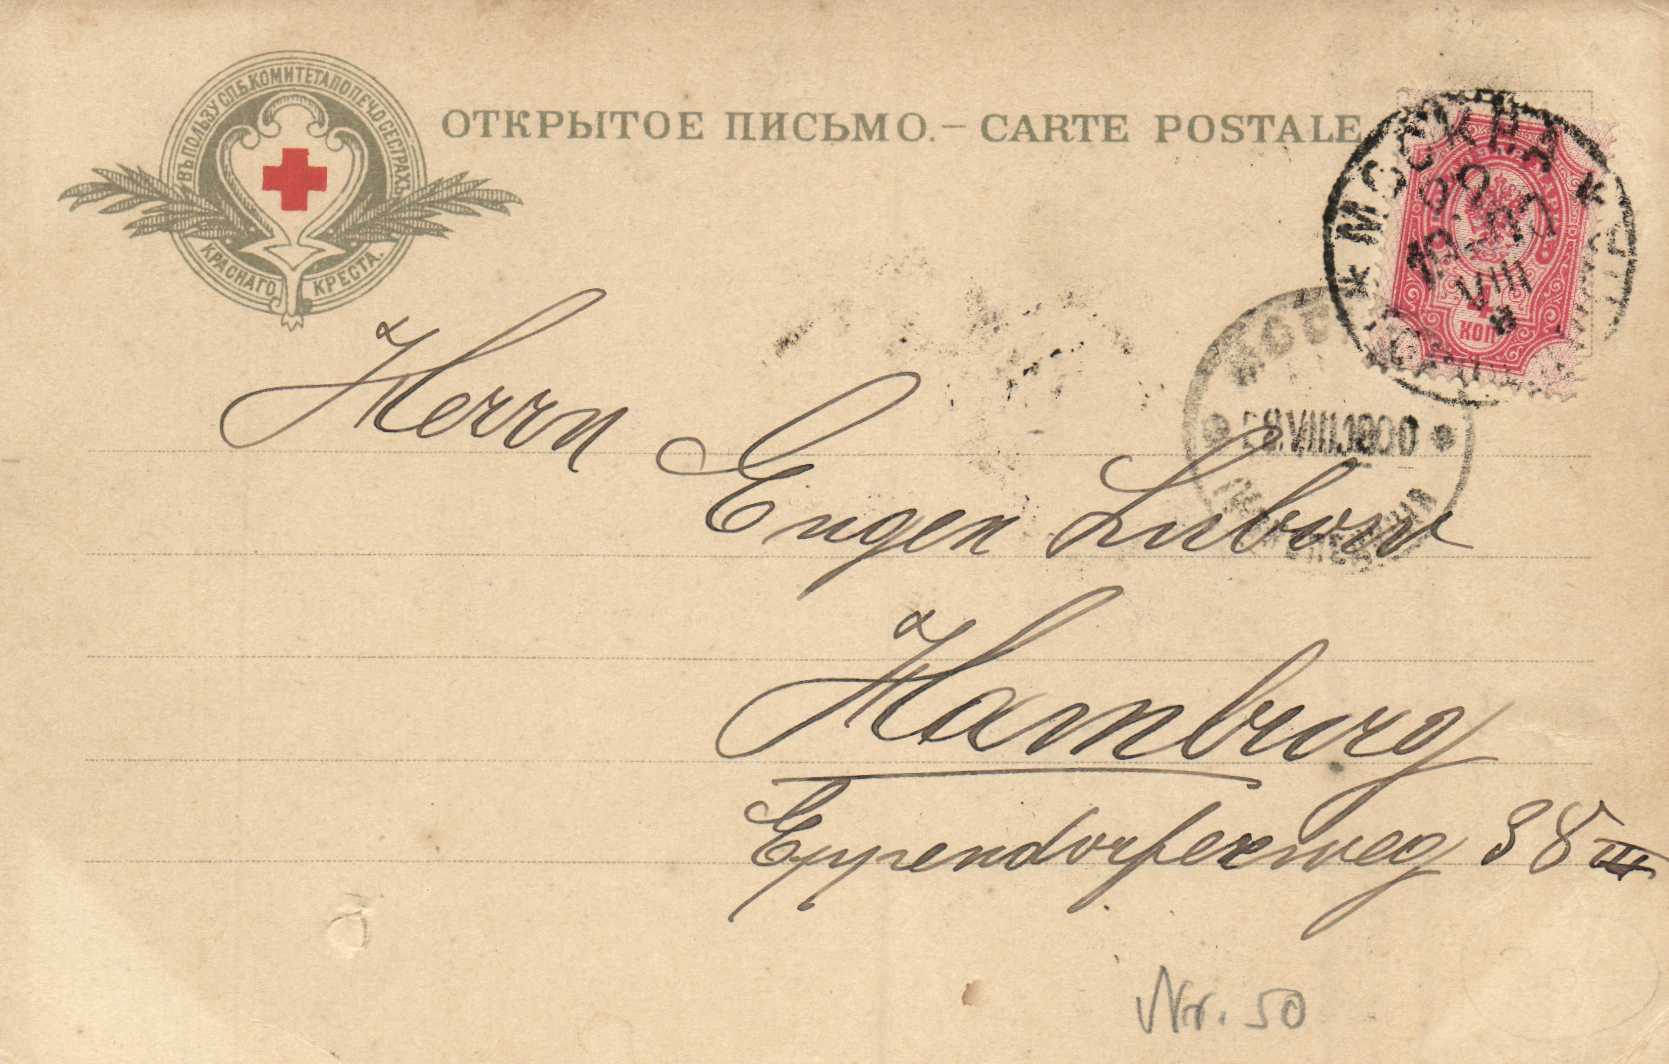 ВЪ ПОЛЬЗУ СПБ. КОМИТЕТА ПОПЕЧ. О СЕСТРАХЪ
КРАСНАГО КРЕСТА.
ОТКРЫТОЕ ПИСЬМО. – CARTE POSTALE
МОСКВА
VIII
4
КОП
VIII.1900
Herrn
Eugen Lubow
Hamburg
Eppendorferweg 38 III
Nr. 50